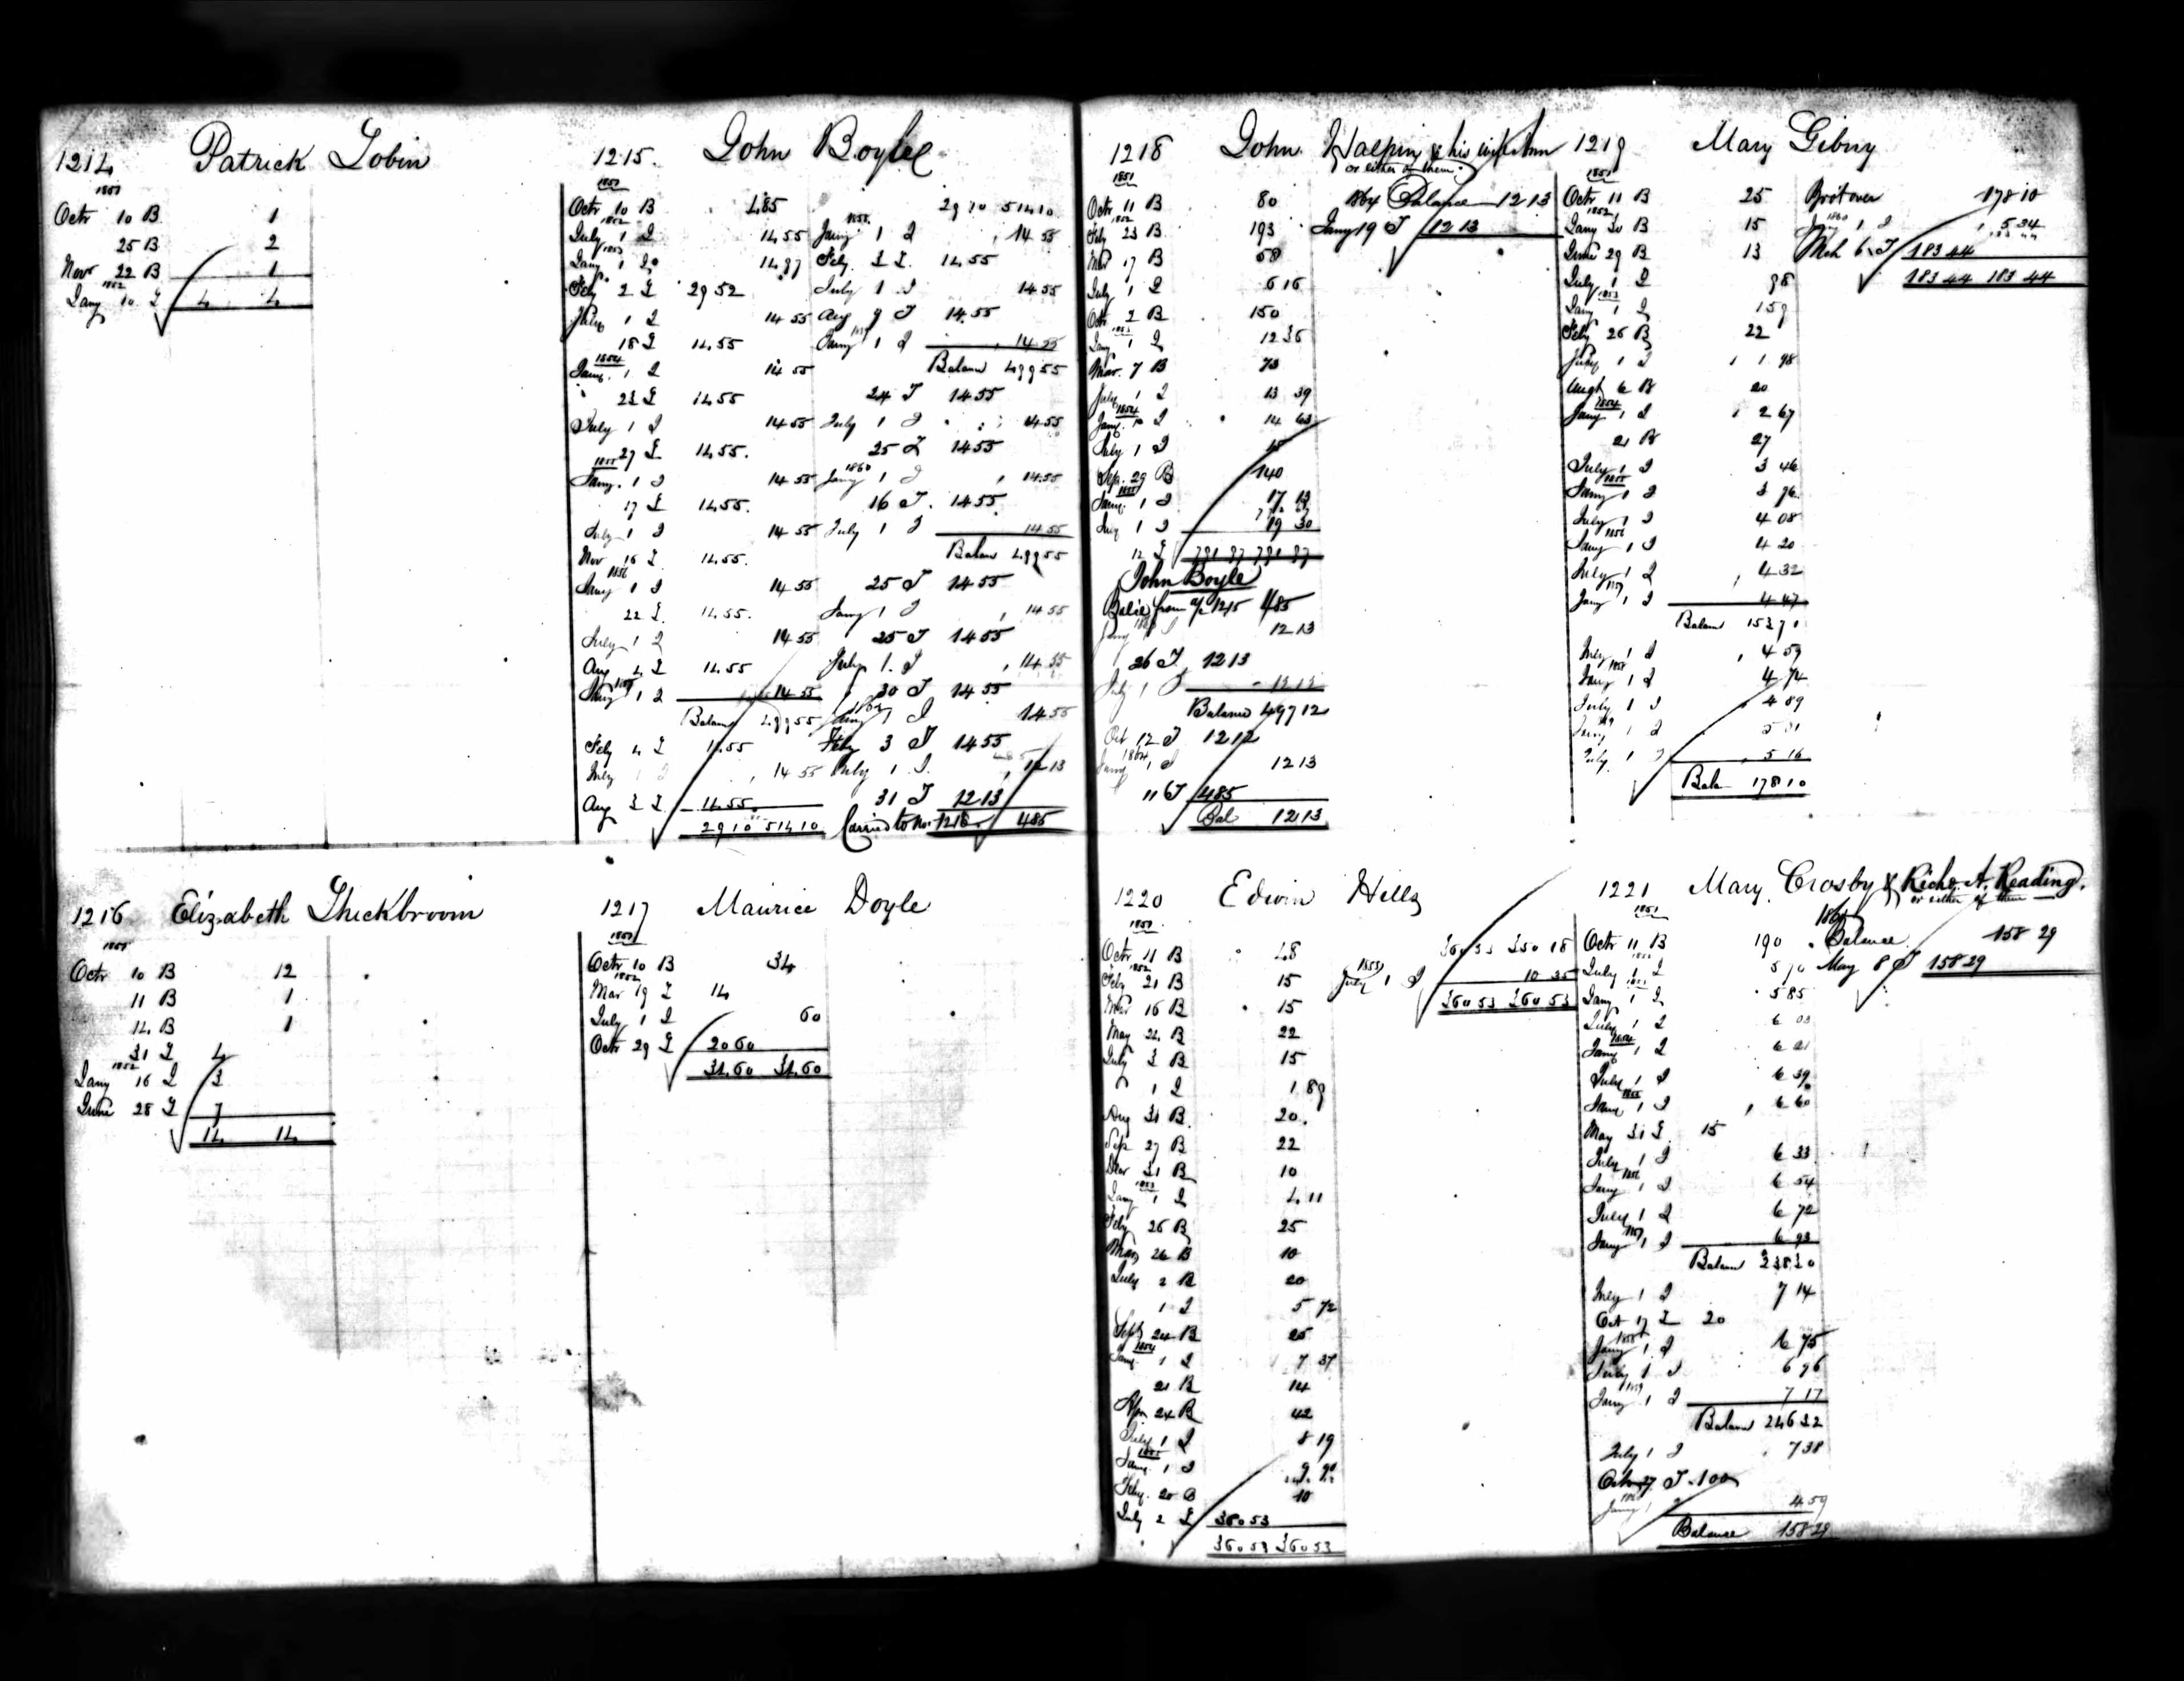 1214 Patrick Tobin
1851
Octr 10 B 1
25 B 2
Novr 22 B 1
1852
Jany 10 T 4 4
1215. John Boyle
1851
Octr 10 B 485
1852
July 1 I 14 55
1853
Jany 1 I 14 97
Feby 2 T 29 52
July 1 I 14 55
18 T 14.55
1854
Jany. 1 I 14 55
23 T 14.55
July 1 I 14 55
27 T 14.55.
1855
Jany. 1 I 14 55
17 T 14.55.
July 1 I 14 55
Nov 16 T 14.55.
1856
Jany 1 I 14 55
22 T 14.55.
July 1 I 14 55
Aug 4 T 14.55
1857
Jany 1 I 14 55
Balance 499 55
Feby 4 T 14.55
July 1 I 14 55
Aug 3 T 14.55
29 10 514 10
29 10 514 10
1858
Jany 1 I 14 55
Feby 3 T 14.55
July 1 I 14 55
Aug 9 T 14.55
1859
Jany 1 I 14 55
Balance 499 55
24 T 14 55
July 1 I 14 55
25 T 14 55
1860
Jany 1 I 14.55
16 T. 14 55
July 1 I 14 55
Balance 499 55
25 T 14 55
Jany 1 I 14 55
25 T 14 55
July 1. I 14 55
30 T 14 55
Jany 1 I 14 55
Feby 3 T 14 55
July 1 I. 12 13
31 T 12 13
Carried to No. 1218 485
1216 Elizabeth Thickbroom
1851
Octr 10 B 12
11 B 1
14 B 1
31 T 4
1852
Jany 16 T 3
June 28 T 7
14 14
1217 Maurice Doyle
1851
Octr 10 B 34
1852
Mar 19 T 14
July 1 I 60
Octr 29 T 20 60
34.60 34.60
1218 John Halpin & his wife Ann
or either of them.
1851
Octr 11 B 80
1852
Feby 23 B 193
Mar 17 B 58
July 1 I 6 16
Octr 2 B 150
1853
Jany 1 I 12 36
Mar. 7 B 73
July 1 I 13 39
1854
Jany. 1 I 14 63
July 1 I 15
Sep. 29 B 140
1855
Jany. 1 I 17 13
July 1 I 19 30
12 T 791 97 791 97
John Boyle
Balce from a/c 1215 485
Jany 1 I 12 13
26 T 12 13
July 1 I 12 12
Balance 497 12
Oct 12 T 12 12
1864
Jany 1 I 12 13
11 T 485
Bal 12 13
1864 Balance 12 13
Jany 19 T 12 13
1219 Mary Gibny
1851
Octr 11 B 25
1852
Jany 30 B 15
June 29 B 13
July 1 I 98
1853
Jany 1 I 1 59
Feby 26 B 22
July 1 I 1 98
Augt 6 B 20
1854
Jany 1 I 2 67
21 B 27
July 1 I 3 46
1855
Jany 1 I 3 96
July 1 I 4 08
1856
Jany 1 I 4 20
July 1 I 4 32
1857
Jany 1 I 4 47
Balance 153 71
July 1 I 4 59
1858
Jany 1 I 4 74
July 1 I 4 89
Jany 1 I 5 01
July 1 I 5 16
Bala 178 10
Brot over 178 10
1860
Jany 1 I 5 34
Mch 6 T 183 44
183 44 183 44
1220 Edwin Hills
1851
Octr 11 B 48
1852
Feby 21 B 15
Mar 16 B 15
May 24 B 22
July 3 B 15
1 I 1 89
Aug 31 B 20
Sep 27 B 22
Decr 31 B 10
1853
Jany 1 I 4 11
Feby 26 B 25
Mar 26 B 10
July 2 B 20
1 I 5 72
Sept 24 B 25
1854
Jany 1 I 7 37
21 B 14
Apr 24 B 42
July 1 I 8 19
1855
Jany. 1 I 9 90
Feby. 20 B 10
July 2 T 360 53
360 53 360 53
360 53 350 18
July 1 I 10 35
360 53 360 53
1221 Mary Crosby & Richd A. Reading.
or either of them
1851
Octr 11 B 190
1852
July 1 I 5 70
1853
Jany 1 I 5 85
July 1 I 6 03
1854
Jany 1 I 6 21
July 1 I 6 39
1855
Jany 1 I 6 60
May 31 T 15
July 1 I 6 33
1856
Jany 1 I 6 54
July 1 I 6 72
1857
Jany 1 I 6 93
Balance 238 30
July 1 I 7 14
Oct 17 T 20
1858
Jany 1 I 6 75
July 1 I 6 96
1859
Jany 1 I 7 17
Balance 246 32
July 1 I 7 38
Oct 27 T 100
Jany 1 I 4 59
Balance 158 29
Balance 158 29
May 8 T 158 29